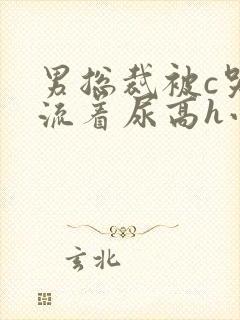 男总裁被c哭
流着尿高h
玄北